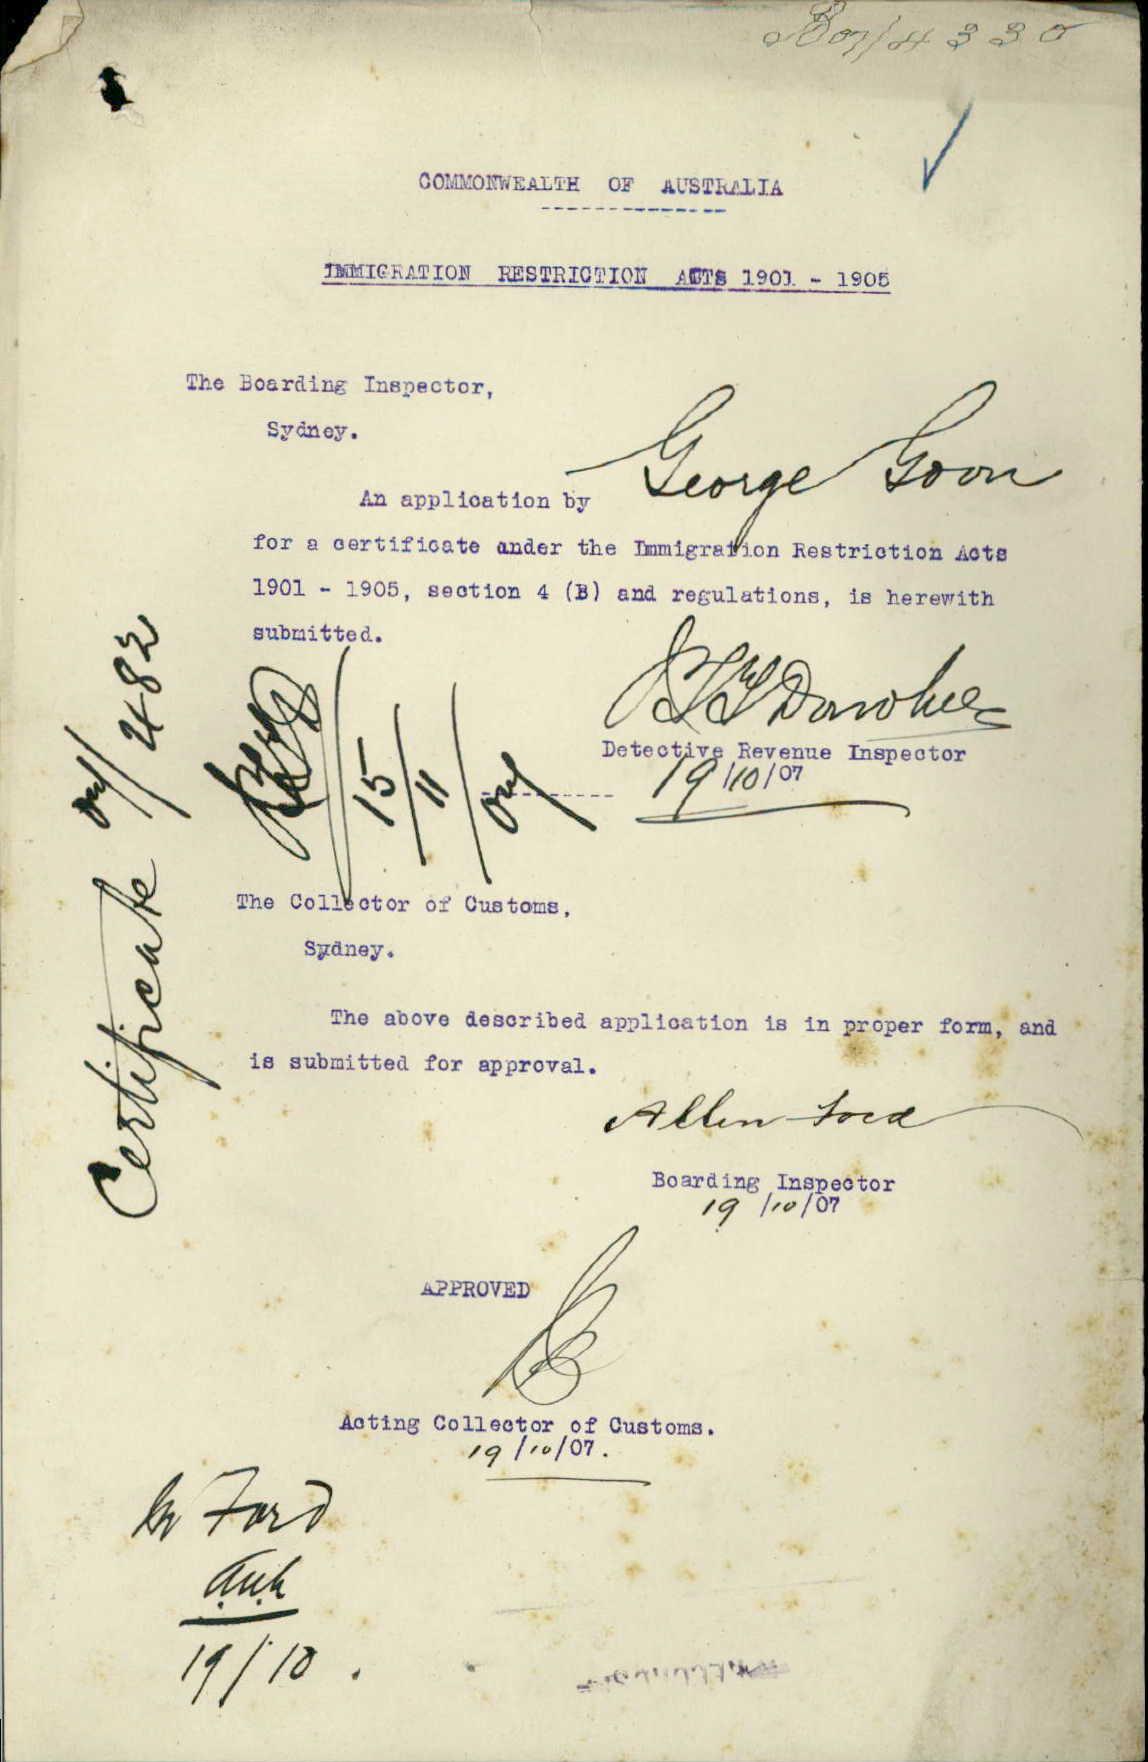 07/4330
COMMONWEALTH OF AUSTRALIA
IMMIGRATION RESTRICTION ACTS 1901 - 1905
The Boarding Inspector,
Sydney.
An application by George Goon
for a certificate under the Immigration Restriction Acts
1901 - 1905, section 4 (B) and regulations, is herewith
submitted.
Donohue
Detective Revenue Inspector
19/10/07
Certificate 07/482
15/11/07
The Collector of Customs,
Sydney.
The above described application is in proper form, and
is submitted for approval.
Allen Ford
Boarding Inspector
19/10/07
APPROVED
Acting Collector of Customs.
19/10/07.
Mr Ford
19/10.